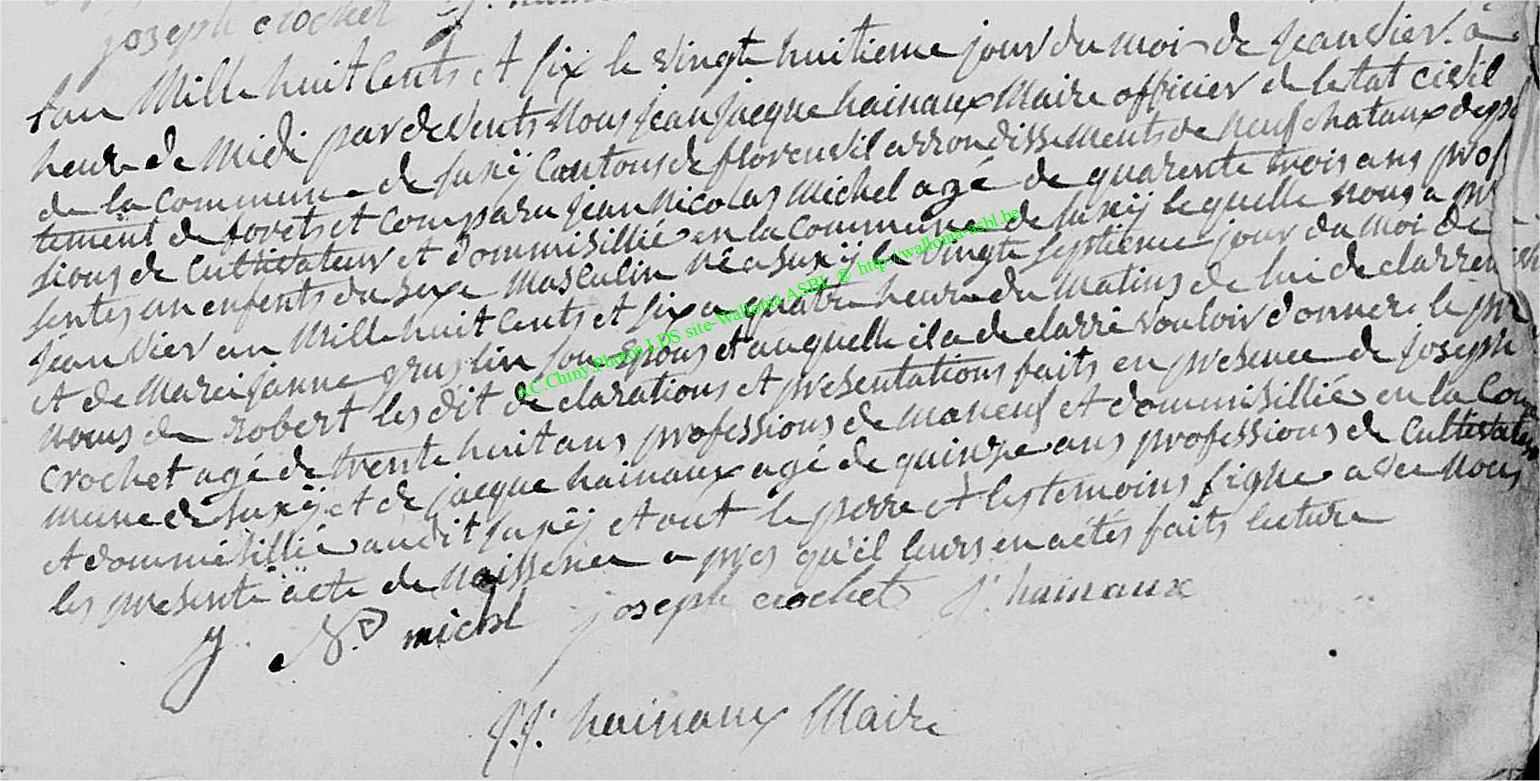 joseph crochet J. hain
Lan Mille huit Cents et six le vingte huitieme jour du moi de jeanvier à
heure de Midi pardevents Nous jean jacque hainaux Maire officier de letat civil
de la commune de suxÿ Cantons de florenvil arrondissements de neufchataux depar
tement de forets et comparu jean nicolas michel agé de quarente trois ans profes
sions de Cultivateur et dommisillié en la commune de suxÿ lequelle nous a pre
sentes un enfents du sexe Masculin né a suxÿ le vingte septieme jour du Moi de
jeanvier an Mille huit Cents et six a quatre heure du Matins de lui declarren
et de Marei janne gruslin son Epous et auquelle il a declarré vouloir donner le pre
noms de robert les dit declarations et presentations faits en presence de joseph
crochet agé de trente huit ans professions de maneuf et dommisillié en la Com
mune de suxÿ et de jacque hainaux agé de quinze ans professions de Cultivateur
et dommisillié audit suxÿ et ont le perre et les temoins signe avec Nous
les presente acte de naissence apres qu'il leurs en a étés faits lecture
J N. D michel joseph crochet J. hainaux
J.J. hainaux Maire
A.C.Chiny Photos LDS site-Wallonia ASBL © http://wallonia-asbl.be